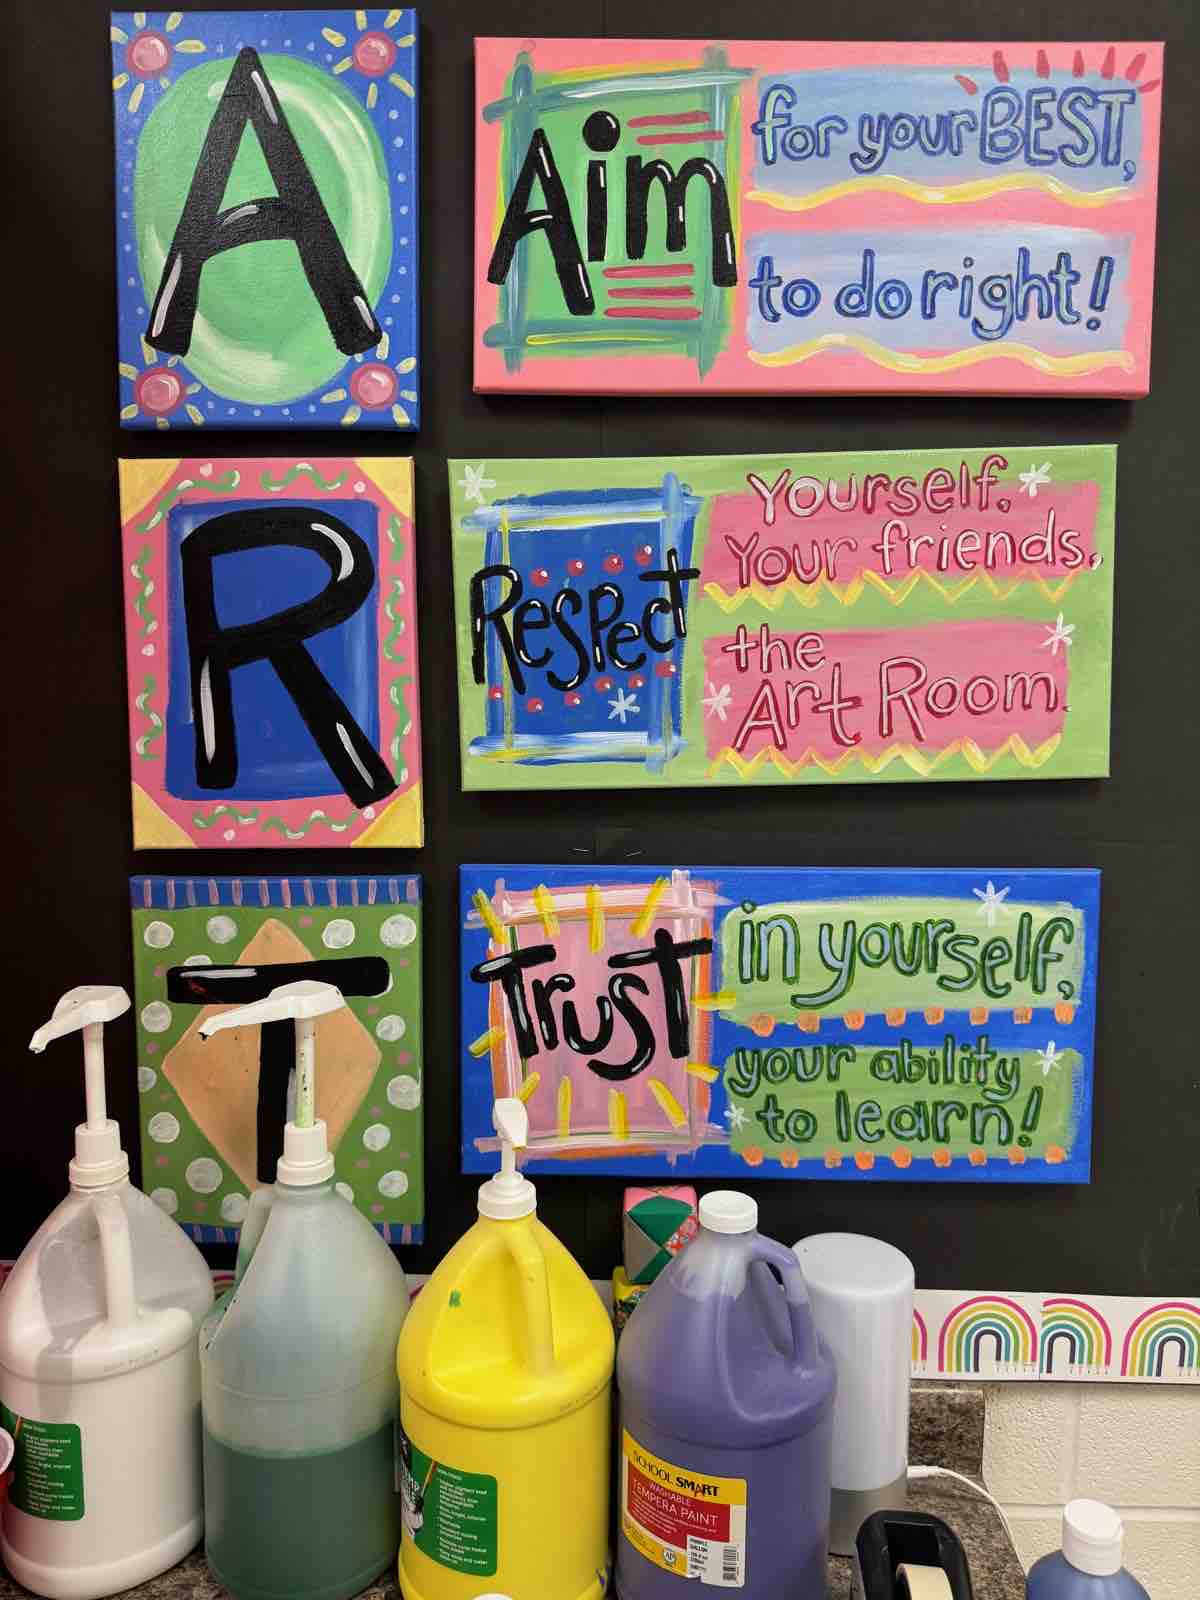 A
Aim
for your BEST,
to do right!
R
Respect
Yourself.
Your friends.
the
Art Room.
T
Trust
in yourself,
your ability
to learn!
SCHOOL SMART
WASHABLE
TEMPERA PAINT
GALLON